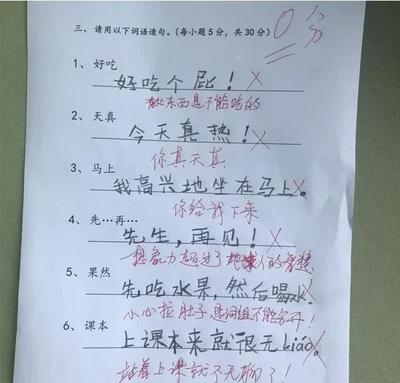 0分
三、请用以下词语造句。(每小题5分，共30分)
1、好吃
好吃个屁！×
有些东西是不能吃的
2、天真
今天真热！×
你真天真
3、马上
我高兴地坐在马上。×
你给我下来
4、先…再…
先生，再见！×
想象力超过了地球人的
5、果然
先吃水果，然后喝水。×
小心拉肚子 是词组不能分开！
6、课本
上课本来就很无liáo。×
站着上课就不无聊了！